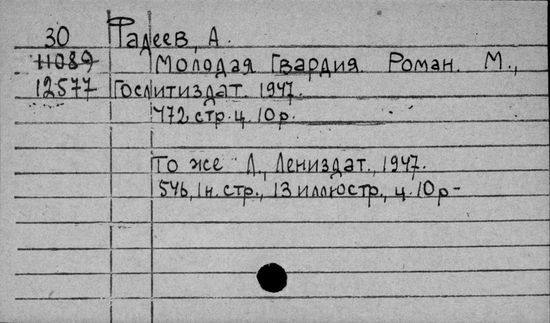 30 Фадеев, А.
11089 Молодая Гвардия. Роман. М.,
12577 Гослитиздат. 1947.
472 стр. ц. 10 р.
То же Л., Лениздат., 1947.
546, 1 н. стр., 13 иллюстр., ц. 10 р-